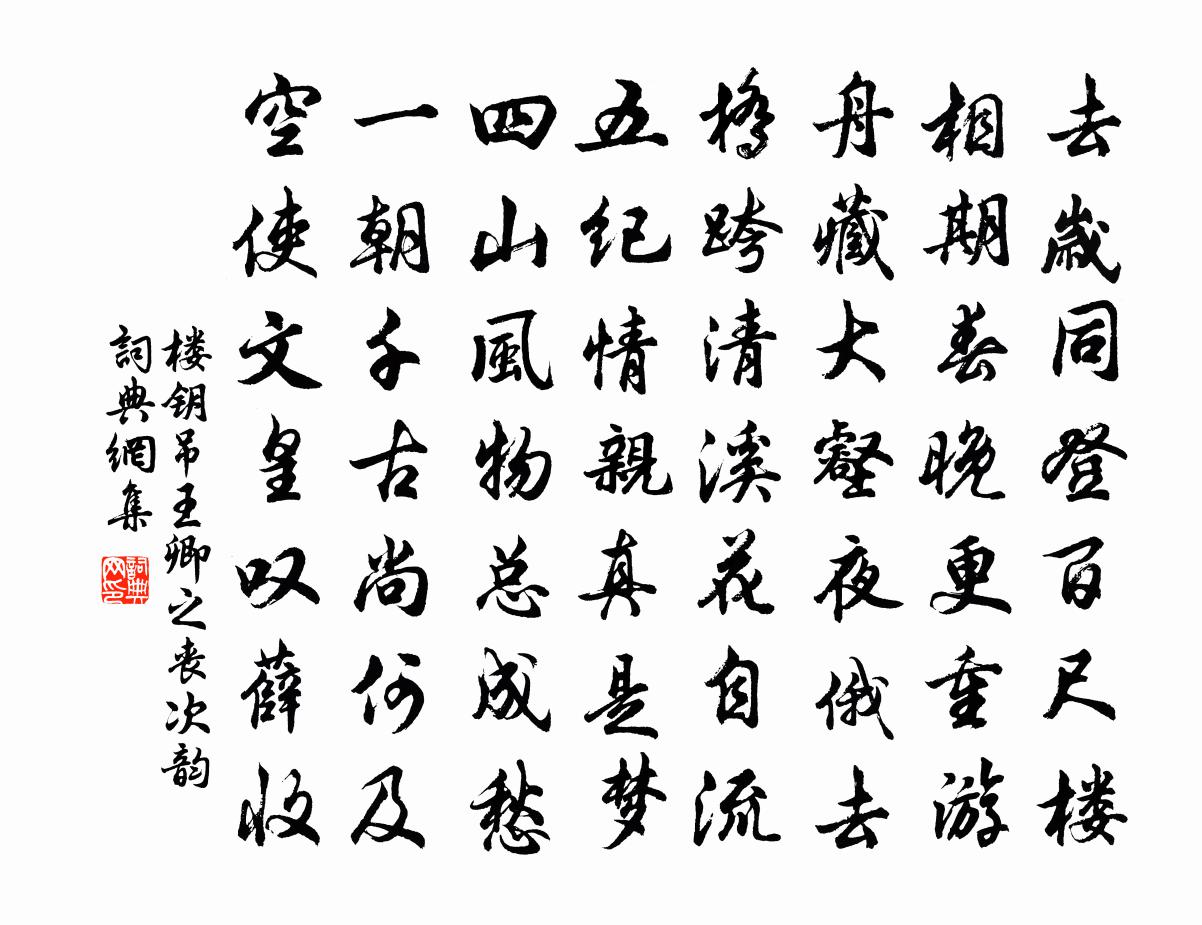 去歲同登百尺楼
相期春晚更重游
舟藏大壑夜俄去
橋跨清溪花自流
五纪情親真是梦
四山風物总成愁
一朝千古尚何及
空使文皇叹薛收
楼钥吊王卿之丧次韵
詞典網集
詞典
网印